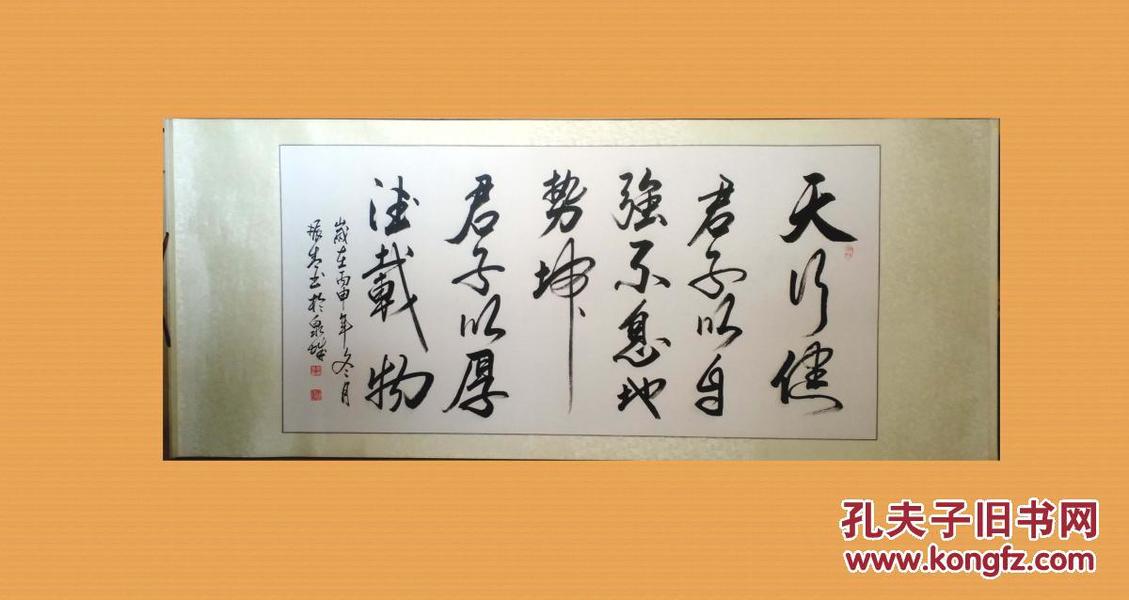 天行健
君子以自
強不息地
勢坤
君子以厚
德載物
歲在丙申年冬月
振生书於泉城
孔夫子旧书网
www.kongfz.com